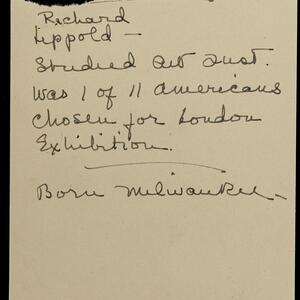 Richard
Lippold —
Studied Art Inst.
Was 1 of 11 Americans
chosen for London
Exhibition.
Born Milwaukee —